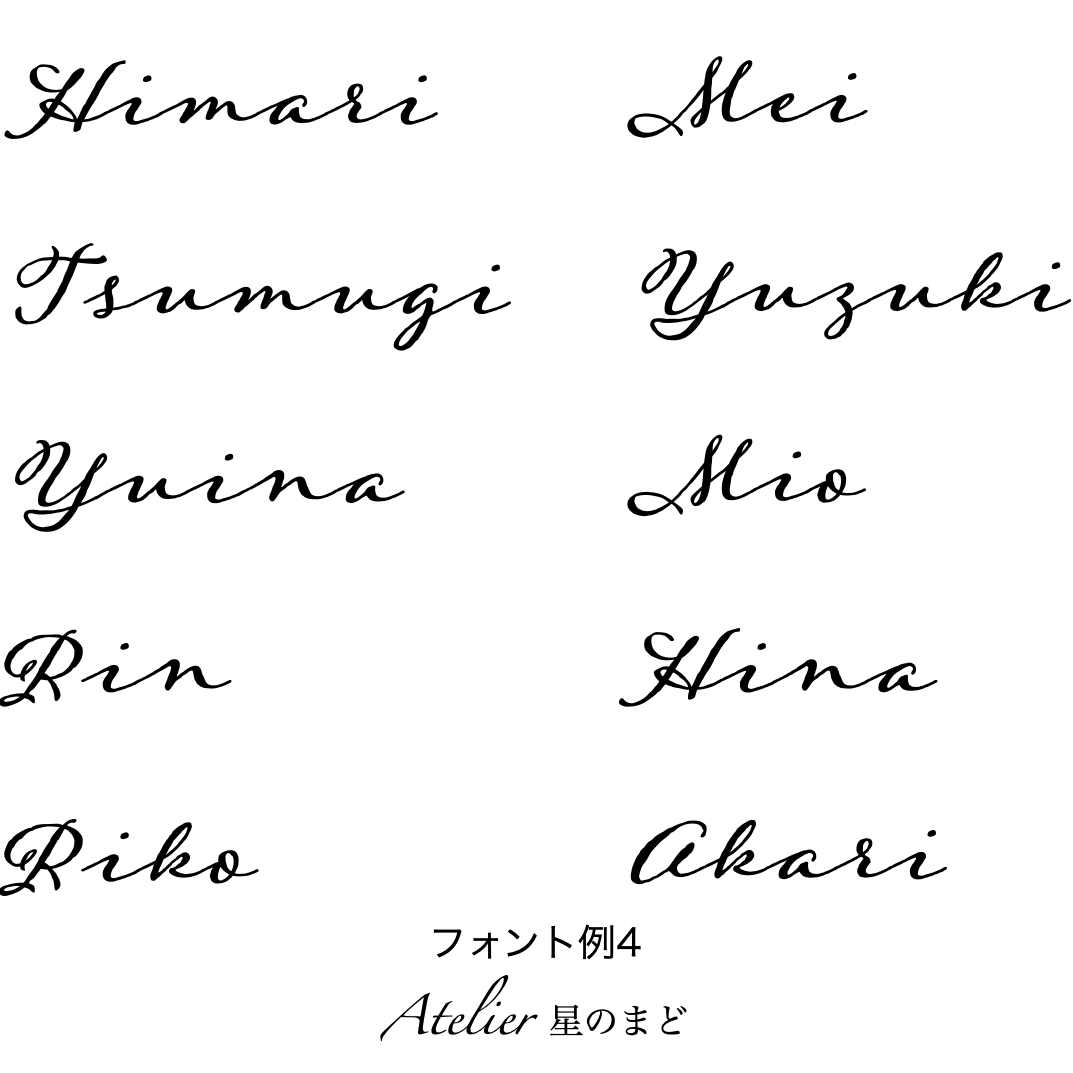 Himari Mei
Tsumugi Yuzuki
Yuina Mio
Rin Hina
Riko Akari
フォント例4
Atelier 星のまど